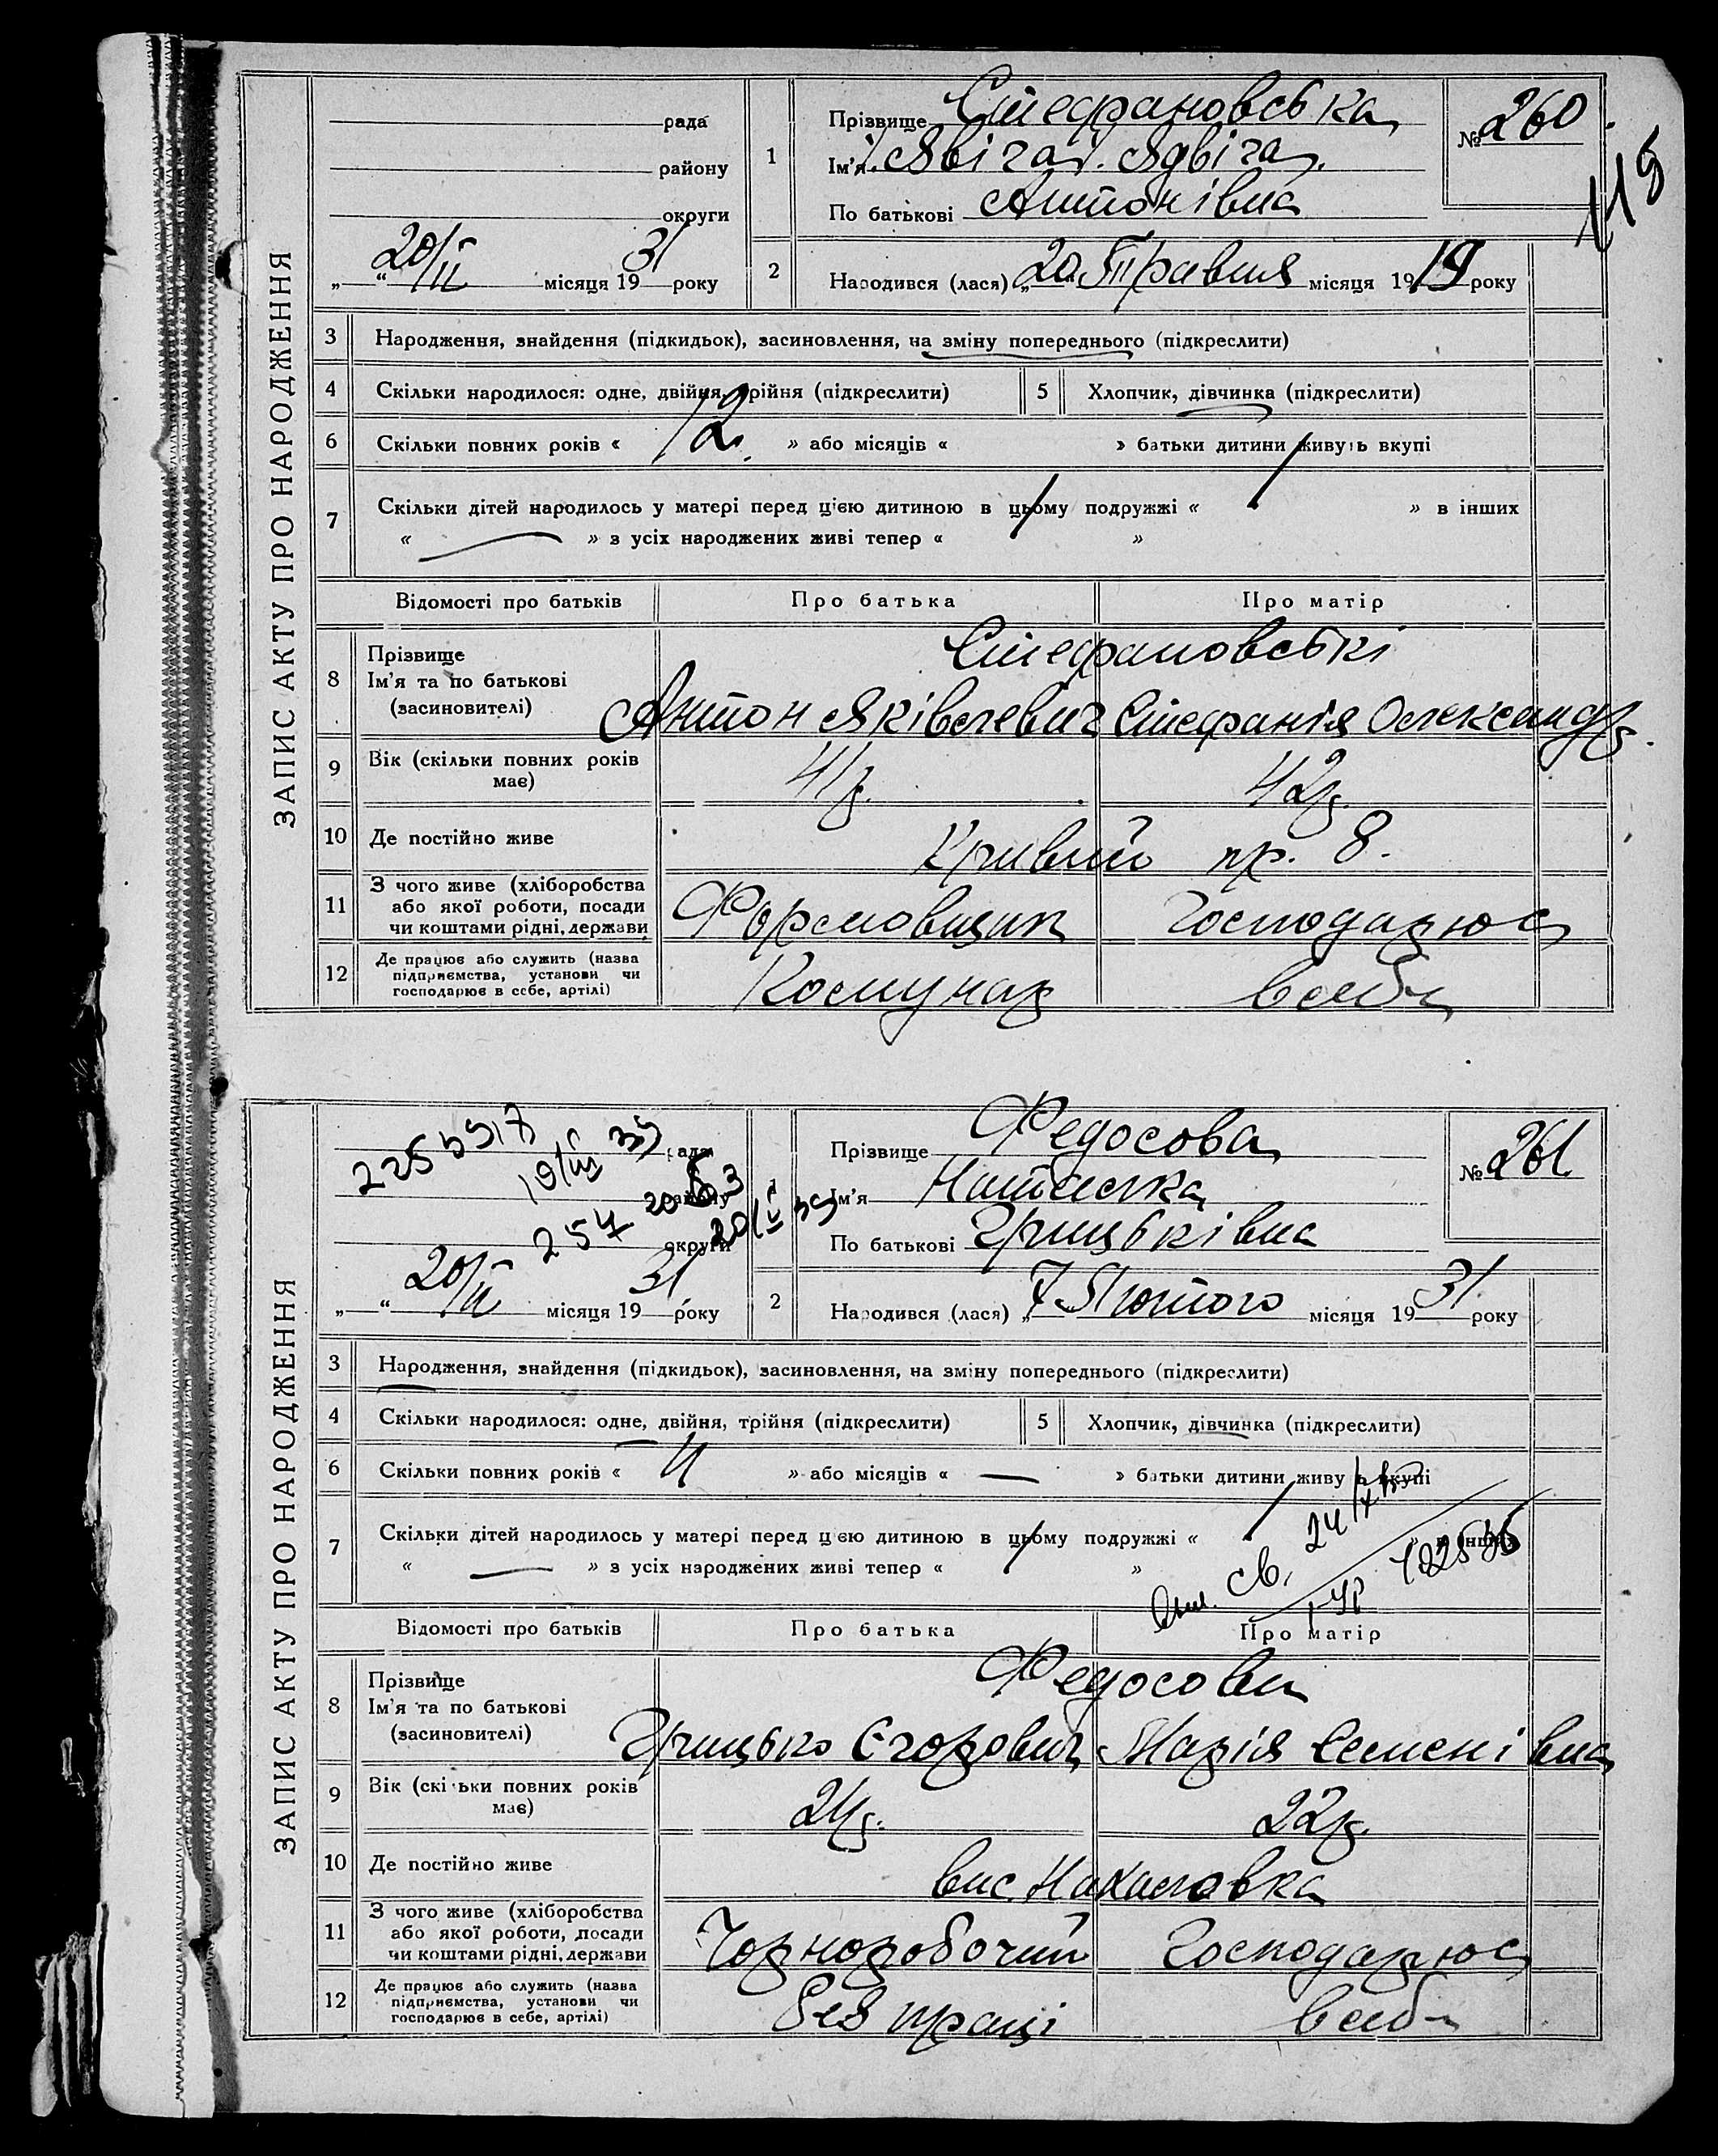 118
ЗАПИС АКТУ ПРО НАРОДЖЕННЯ
рада
району
округи
„20/ІІ“ місяця 1931 року
1
Прізвище Стефановська
Ім'я Ядвіга
По батькові Антонівна
№ 260
2
Народився (лася) „20“ Травня місяця 1919 року
3 Народження, знайдення (підкидьок), засиновлення, на зміну попереднього (підкреслити)
4 Скільки народилося: одне, двійня, трійня (підкреслити)
5 Хлопчик, дівчинка (підкреслити)
6 Скільки повних років « 12 » або місяців « » батьки дитини живуть вкупі
7 Скільки дітей народилось у матері перед цією дитиною в цьому подружжі « / » в інших
« — » з усіх народжених живі тепер « / »
Відомості про батьків Про батька Про матір
8 Прізвище
Ім'я та по батькові
(засновителі)
Стефановські
Антон Яківлевич Стефанія Олександр
9 Вік (скільки повних років має)
41 р. 42 р.
10 Де постійно живе
Кривий пр. 8.
11 З чого живе (хліборобства
або якої роботи, посади
чи коштами рідні, держави
Формовщик Господарює
12 Де працює або служить (назва
підприємства, установи чи
господарює в себе, артілі)
Комунар в себе
ЗАПИС АКТУ ПРО НАРОДЖЕННЯ
рада
району
округи
„20/ІІ“ місяця 1931 року
1
Прізвище Федосова
Ім'я
По батькові Грицьківна
№ 261
2
Народився (лася) „7“ Лютого місяця 1931 року
3 Народження, знайдення (підкидьок), засиновлення, на зміну попереднього (підкреслити)
4 Скільки народилося: одне, двійня, трійня (підкреслити)
5 Хлопчик, дівчинка (підкреслити)
6 Скільки повних років « 4 » або місяців « — » батьки дитини живуть вкупі
7 Скільки дітей народилось у матері перед цією дитиною в цьому подружжі « / » в інших
« — » з усіх народжених живі тепер « / »
Відомості про батьків Про батька Про матір
8 Прізвище
Ім'я та по батькові
(засиновителі)
Федосови
Грицько Єгорович Марія Семенівна
9 Вік (скільки повних років має)
24 р. 22 р.
10 Де постійно живе
вис. Нахаловка
11 З чого живе (хліборобства
або якої роботи, посади
чи коштами рідні, держави
Чорноробочий Господарює
12 Де працює або служить (назва
підприємства, установи чи
господарює в себе, артілі)
без праці в себе